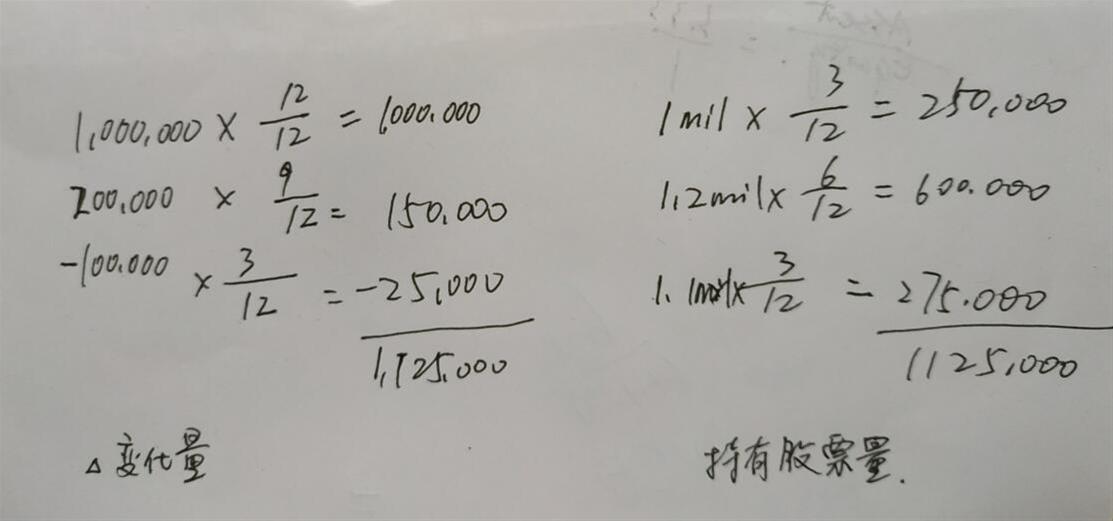 1,000,000 × 12/12 = 1,000.000
200,000 × 9/12 = 150.000
-100.000 × 3/12 = -25,000
1,125,000
△ 变化量
1 mil × 3/12 = 250,000
1.2 mil × 6/12 = 600.000
1.1 mil × 3/12 = 275.000
1125,000
持有股票量.